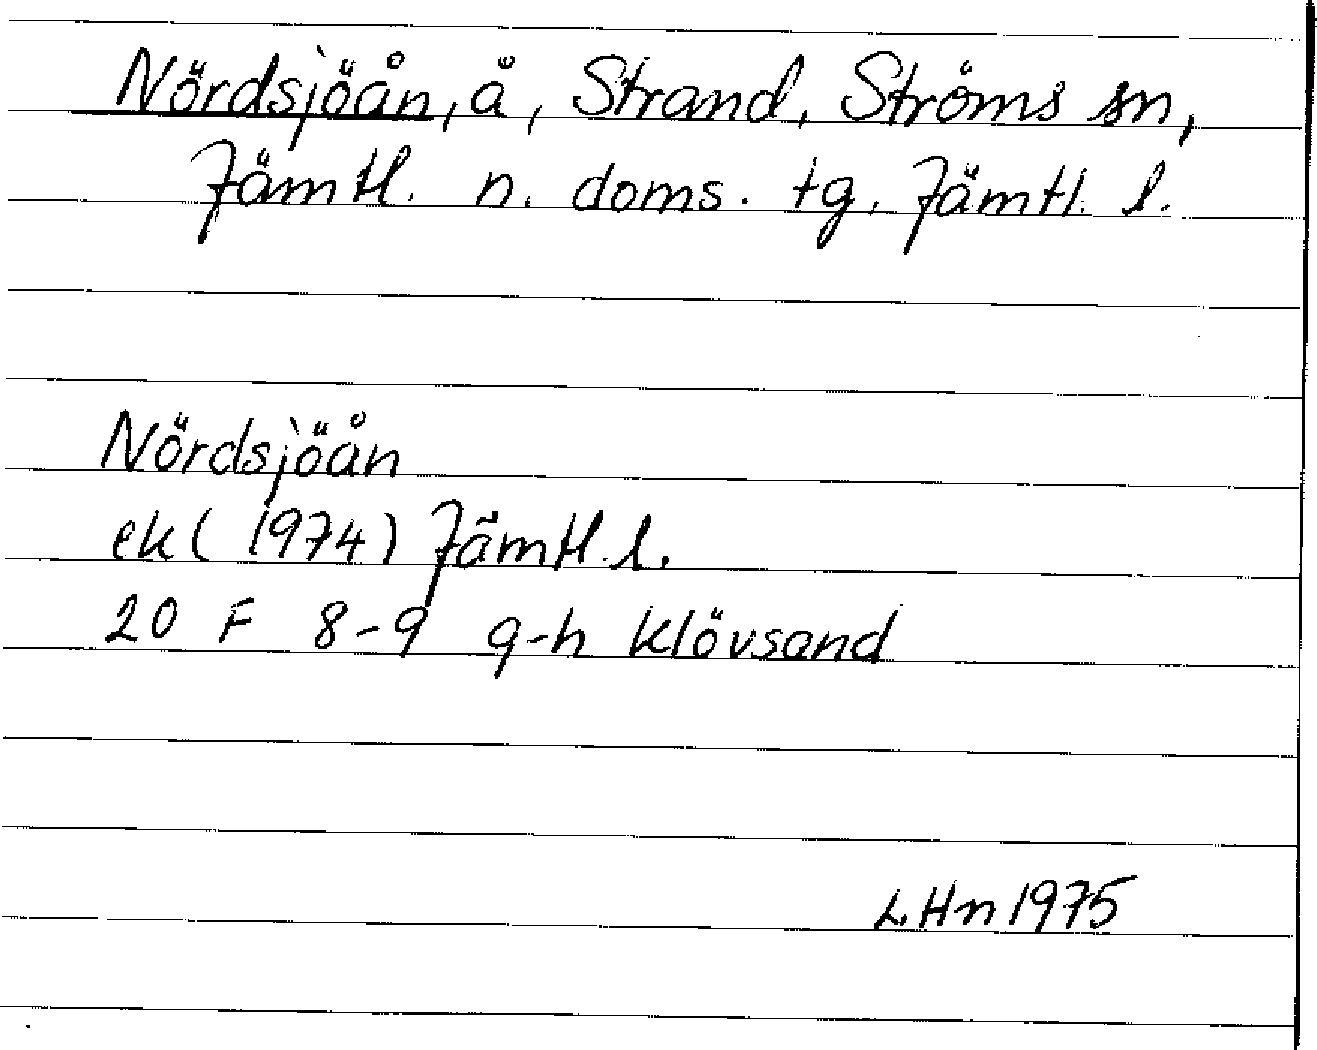 Nördsjöån, å, Strand, Ströms sn,
Jämtl. n. doms. tg. Jämtl. l.
Nördsjöån
ek (1974) Jämtl. l.
20 F 8-9 g-h Klövsand
L Hn 1975